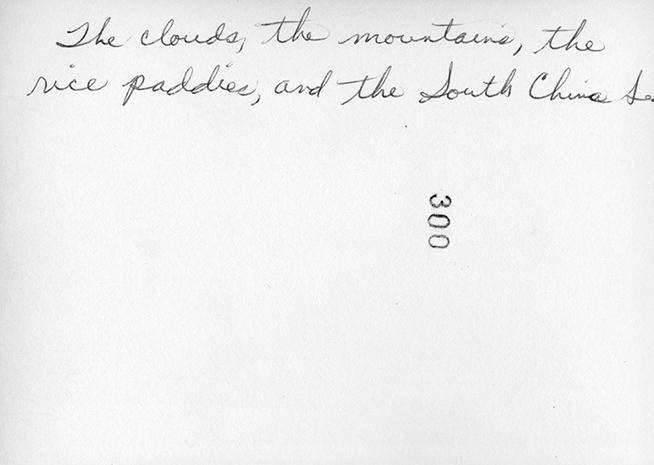 The clouds, the mountains, the
rice paddies, and the South China Se
300